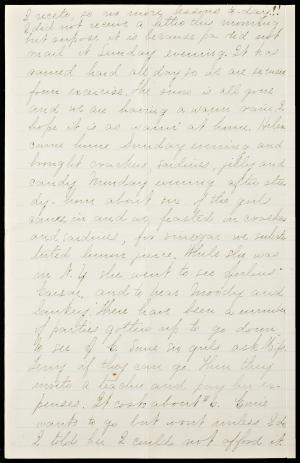 I recite, so no more lessons to-day!!
I did not receive a letter this morning
but supose it is because pa did not
mail it Sunday evening. It has
rained hard all day so we are excused
from exercise. The snow is all gone
and we are having a warm rain. I
hope it is as warm at home. Helen
came home Sunday evening and
brought crackers, sardines, jellies and
candy. Monday evening after stu-
dy-hour about six of the girls
came in and we feasted in crackers
and sardines, for vinegar we substi-
tuted lemon juice. While she was
in N. Y. she went to see
and to hear Moody and
Sankey. There have been a number
of parties gotten up to go down
to see
if they can go. Then they
invite a teacher and pay her ex-
penses. It costs about $6.
wants to go but wont unless I do
I told her I could not afford it